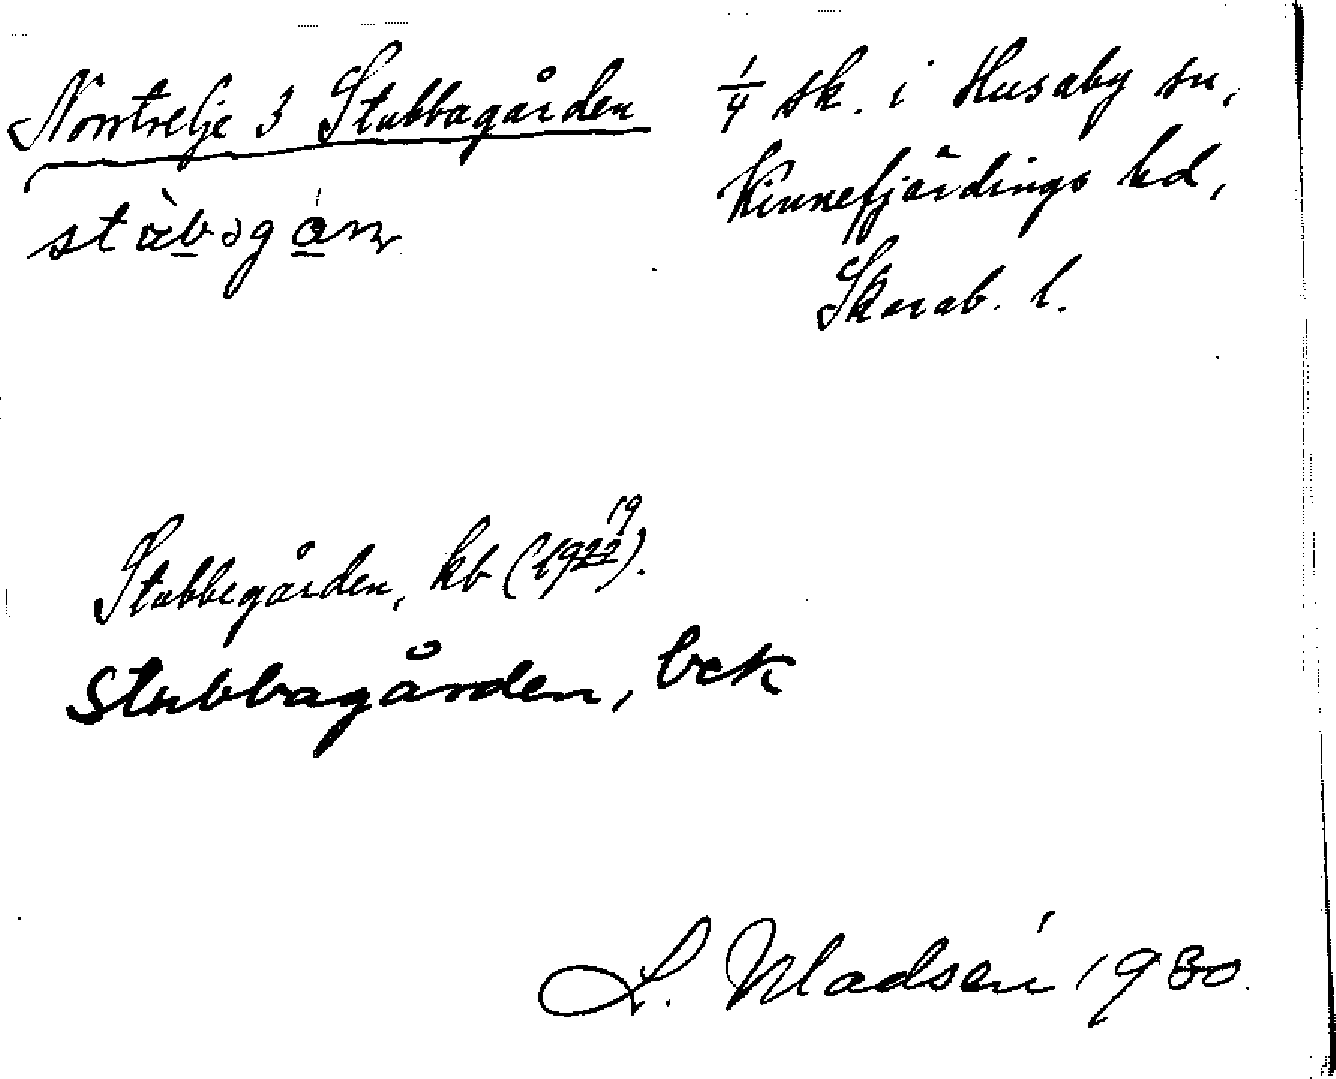 Norrtrelje 3 Stubbagården
¼ sk. i Husaby sn,
Kinnefjärdings hd,
Skarab. l.
Stubbegården, kb (1922 19).
Stubbagården, bek
L. Madsén 1930.